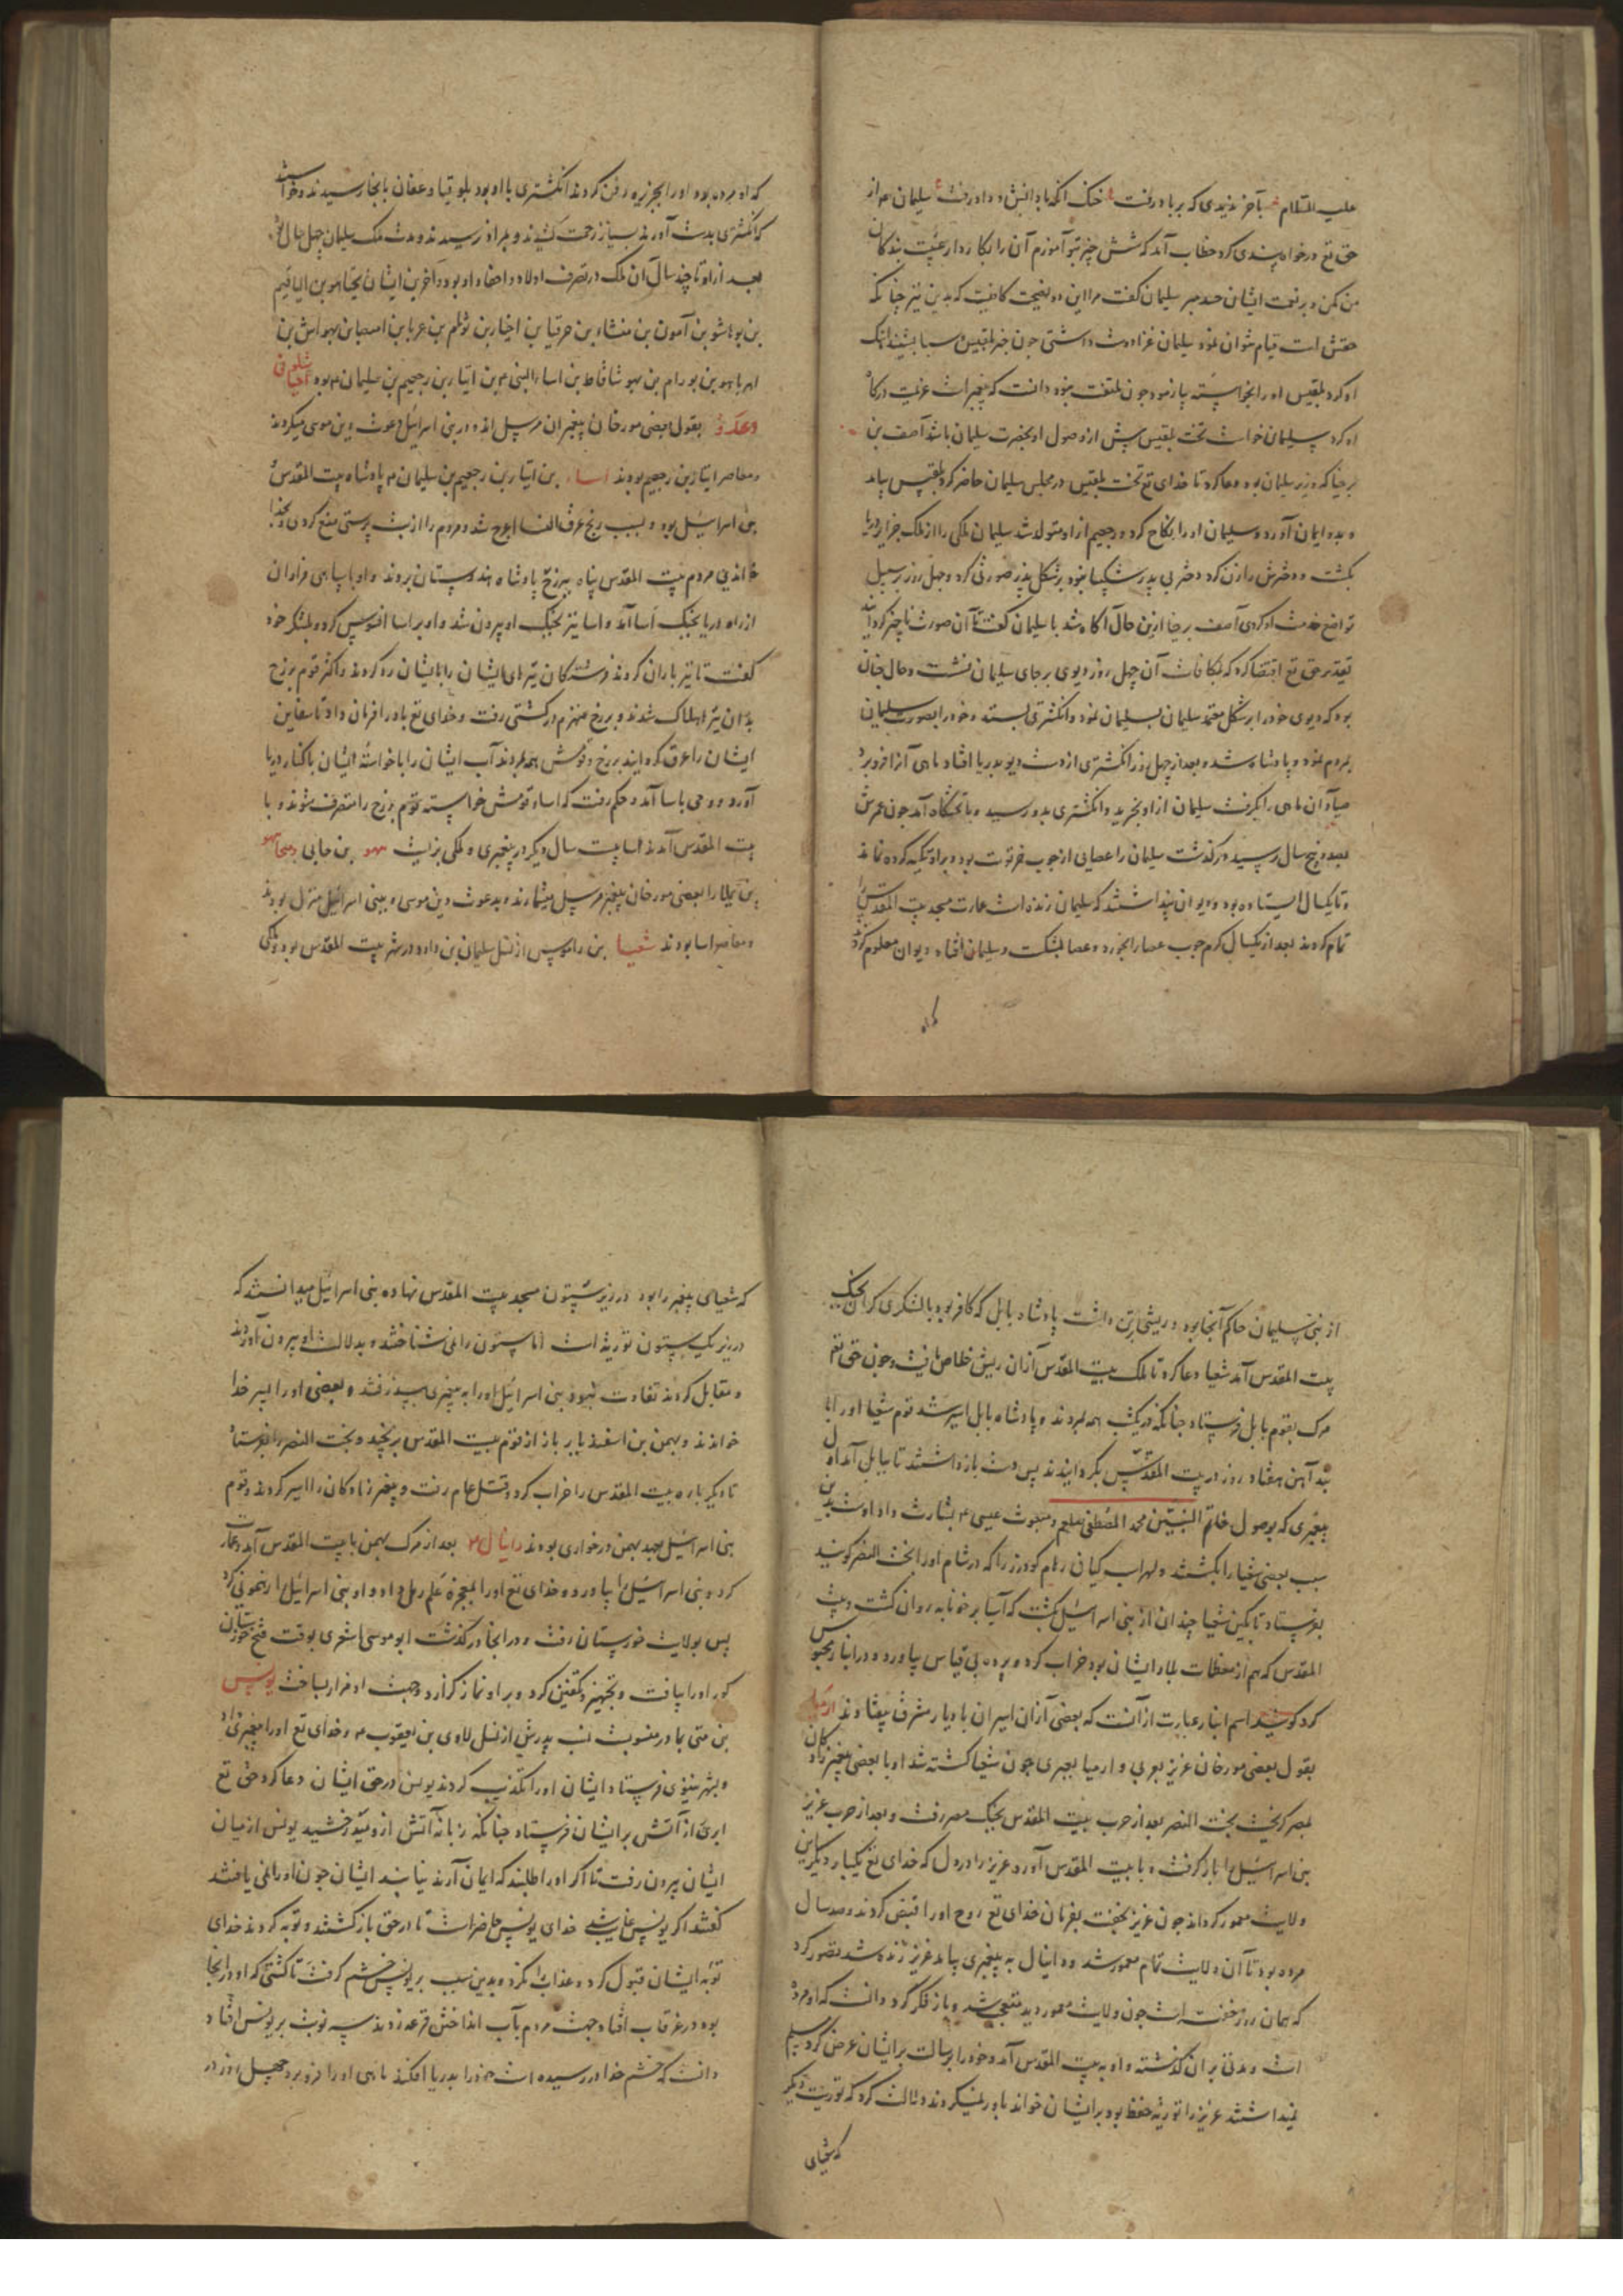 علیه السلام بآخر ندیدی که بر باد رفت خنک آنکه با دانش و داد رفت سلیمان م از
حق تع درخواه پندی کرد خطاب آمد که شش چیز بتو آموزم آن را بکار دار عیب بندکان
من مکن و بر نعمت ایشان حسد مبر سلیمان کفت مرا این دو نصیحت کافیست که بدین نیز چنانکه
حقش است قیام نتوان نمود سلیمان غزا دوست داشتی چون خبر بلقیس و سبا بشنید آهنک
او کرد بلقیس او را بخواسته بیازمود چون ملتفت نبود دانست که پیغمبر است عزیمت درکاه
او کرد سلیمان خواست تخت بلقیس پیش از وصول او بحضرت سلیمان باشد آصف بن
برخیا که وزیر سلیمان بود دعا کرد تا خدای تع تخت بلقیس در مجلس سلیمان حاضر کرد بلقیس بیامد
و بدو ایمان آورد و سلیمان او را نکاح کرد و رجعیم از او متولد شد سلیمان ملکی را از ملک جزایر دریا
بکشت و دخترش را زن کرد دختر بی پدر شکیبا نبود بر شکل پدر صورتی کرد و چهل روز بر سبیل
تواضع خدمت او کردی آصف برخیا ازین حال آکاه شد با سلیمان کفت تا آن صورت ناچیز کرد
تقدیر حق تع اقتضا کرد که بمکافات آن چهل روز دیوی بر جای سلیمان نشست و حال چنان
بود که دیوی خود را بر شکل معتمد سلیمان بسلیمان نمود و انکشتری بستد و خود را بصورت سلیمان
بمردم نمود و پادشاه شد و بعد از چهل روز انکشتری از دست دیو بدریا افتاد ماهی آنرا فرو برد
صیاد آن ماهی را بکرفت سلیمان از او بخرید و انکشتری بدو رسید و با تختکاه آمد چون عمرش
بصد و پنج سال رسید درکذشت سلیمان را عصایی از چوب خرنوت بود و بر او تکیه کرده نماند
و تا یکسال ایستاده بود و دیوان پنداشتند که سلیمان زنده است عمارت مسجد بیت المقدس
تمام کردند بعد از یکسال کرم چوب عصا را بخورد و عصا بشکست و سلیمان افتاد دیوان معلوم کرد
که او مرده بود او را بجزیره دفن کردند انکشتری با او بود بلوقیا و عفان بانجا رسیدند و خواستند
که انکشتری بدست آورند بسیار زحمت کشیدند و بمراد نرسیدند و مدت ملک سلیمان چهل سال بود
بعد از او تا چند سال آن ملک در تصرف اولاد و احفاد او بود و آخرین ایشان یحیاهو بن الیاقیم
بن یوشا بن آمون بن منشاء بن حزقیا بن اخیاز بن یوثم بن عزیا بن امصیا بن یهواش بن
اخزیاهو بن یورام بن یهوشافاط بن اسا النبی م بن ابیاز بن رجعیم بن سلیمان م بود اخیا شلونی
و عدو بقول بعضی مورخان پیغمبران مرسل اند و در بنی اسرائیل دعوت بدین موسی میکردند
و معاصر ابیاز بن رجعیم بودند اساء بن ابیاز بن رجعیم بن سلیمان م پادشاه بیت المقدس
بنی اسرائیل بود و بسبب رنج عرق النسا اعرج شد و مردم را از بت پرستی منع کردی و بخدا
خواندی مردم بیت المقدس پناه بزرخ پادشاه هندوستان بردند و او با سپاهی فراوان
از راه دریا بجنک اسا آمد و اسا نیز بجنک او بیرون شد و او بر اسا افسوس کرد و لشکر خود
کفت تا تیرباران کردند فرشتکان تیرهای ایشان را با ایشان رد کردند و اکثر قوم زرخ
بدان تیر هلاک شدند و زرخ منهزم در کشتی رفت و خدای تع باد را فرمان داد تا سفاین
ایشان را غرق کردانید زرخ و قومش همه بمردند آب ایشان را با خواسته ایشان با کنار دریا
آورد و وحی باسا آمد و حکم رفت که اسا و قومش خواسته قوم زرخ را متصرف شوند و با
بیت المقدس آمدند اسا بیست سال دیکر در پیغمبری و ملکی بزیست یهو بن حنانی و میخاهو
بن یملا را بعضی مورخان پیغمبر مرسل میشمارند و بدعوت دین موسی م ببنی اسرائیل منزل بودند
و معاصر اسا بودند شعیا بن راموس از نسل سلیمان بن داود در شهر بیت المقدس بود و ملکی
از بنی سلیمان حاکم آنجا بود و ریشی بر تن داشت پادشاه بابل که کافر بود با لشکری کران بجنک
بیت المقدس آمد شعیا دعا کرد تا ملک بیت المقدس از آن ریش خلاص یافت و چون حق تع
مرک بقوم بابل فرستاد چنانکه در یکشب همه بمردند و پادشاه بابل اسیر شد قوم شعیا او را با
بند آهن هفتاد روز در بیت المقدس بکردانیدند پس دست بازداشتند تا ببابل آمد اول
پیغمبری که بوصول خاتم النبیین محمد المصطفی صلعم و مبعوث عیسی م بشارت داد او است بدین
سبب بعضی شعیا را بکشتند و لهراسب کیان رهام کودرز را که در شام او را بخت النصر کویند
بفرستاد تا بکین شعیا چندان از بنی اسرائیل بکشت که آسیا بر خونابه روان کشت و بیت
المقدس که هم از معظمات بلاد ایشان بود خراب کرد و برده بی قیاس بیاورد و در انبار محبوس
کرد کویند اسم انبار عبارت از آنست که بعضی از آن اسیران با دیار مشرق بیفتادند ارمیا
بقول بعضی مورخان عزیر بعربی و ارمیا بعبری چون شعیا کشته شد او با بعضی پیغمبر زادکان
بمصر کریخت بخت النصر بعد از حرب بیت المقدس بجنک مصر رفت و بعد از حرب عزیر
بنی اسرائیل را باز کرفت و با بیت المقدس آورد عزیر را در دل که خدای تع یکبار دیکر این
ولایت معمور کرداند چون عزیر بخفت بفرمان خدای تع روح او را قبض کردند و صد سال
مرده بود تا آن ولایت تمام معمور شد و دانیال به پیغمبری بیامد عزیر زنده شد تصور کرد
که همان روز خفته است چون ولایت معمور دید متعجب شد و باز فکر کرد دانست که او مرده
است و مدتی بر آن کذشته و او به بیت المقدس آمد و خود را برسالت بر ایشان عرض کرد مسلم
نمیداشتند عزیر را توریة حفظ بود بر ایشان خواند باور نمیکردند دلالت کرد که توریت دیکر
که شعیای
که شعیای پیغمبر را بود در زیر ستون مسجد بیت المقدس نهاده بنی اسرائیل میدانستند که
در زیر یک ستون توریة است اما ستون را نمی شناختند و بدلالت او بیرون آوردند
و مقابل کردند تفاوت نبود بنی اسرائیل او را به پیغمبری بپذرفتند و بعضی او را پسر خدا
خواندند و بهمن بن اسفندیار باز از قوم بیت المقدس برنجید و بخت النصر را بفرستاد
تا دیکر باره بیت المقدس را خراب کرد و قتل عام رفت و پیغمبر زادکان را اسیر کردند و قوم
بنی اسرائیل بعهد بهمن در خواری بودند دانیال م بعد از مرک بهمن با بیت المقدس آمد و عمارت
کرد و بنی اسرائیل را بیاورد و خدای تع او را بمعجزه علم رمل داد و او بنی اسرائیل را رهنمونی کرد
پس بولایت خوزستان رفت و در آنجا درکذشت ابو موسی اشعری بوقت فتح خوزستان
کور او را بیافت و تجهیز و تکفین کرد و بر او نماز کزارد و جهت او مزار بساخت یونس
بن متی بمادر منسوبست نسب پدرش از نسل لاوی بن یعقوب م و خدای تع او را پیغمبری داد
و بشهر نینوی فرستاد ایشان او را تکذیب کردند یونس در حق ایشان دعا کرد حق تع
ابری از آتش بر ایشان فرستاد چنانکه زبانه آتش ازو میدرخشید یونس از میان
ایشان بیرون رفت تا اکر او را طلبند که ایمان آرند نیابند ایشان چون او را نمی یافتند
کفتند اکر یونس غایبست خدای یونس حاضر است تا در حق بازکشتند و توبه کردند خدای
توبه ایشان قبول کرد و عذاب نکرد و بدین سبب بر یونس خشم کرفت تا کشتی که او در آنجا
بود در غرقاب افتاد جهت مردم بآب انداختن قرعه زدند سه نوبت بر یونس افتاد
دانست که خشم خدا در رسیده است خود را بدریا افکند ماهی او را فرو برد چهل روز در